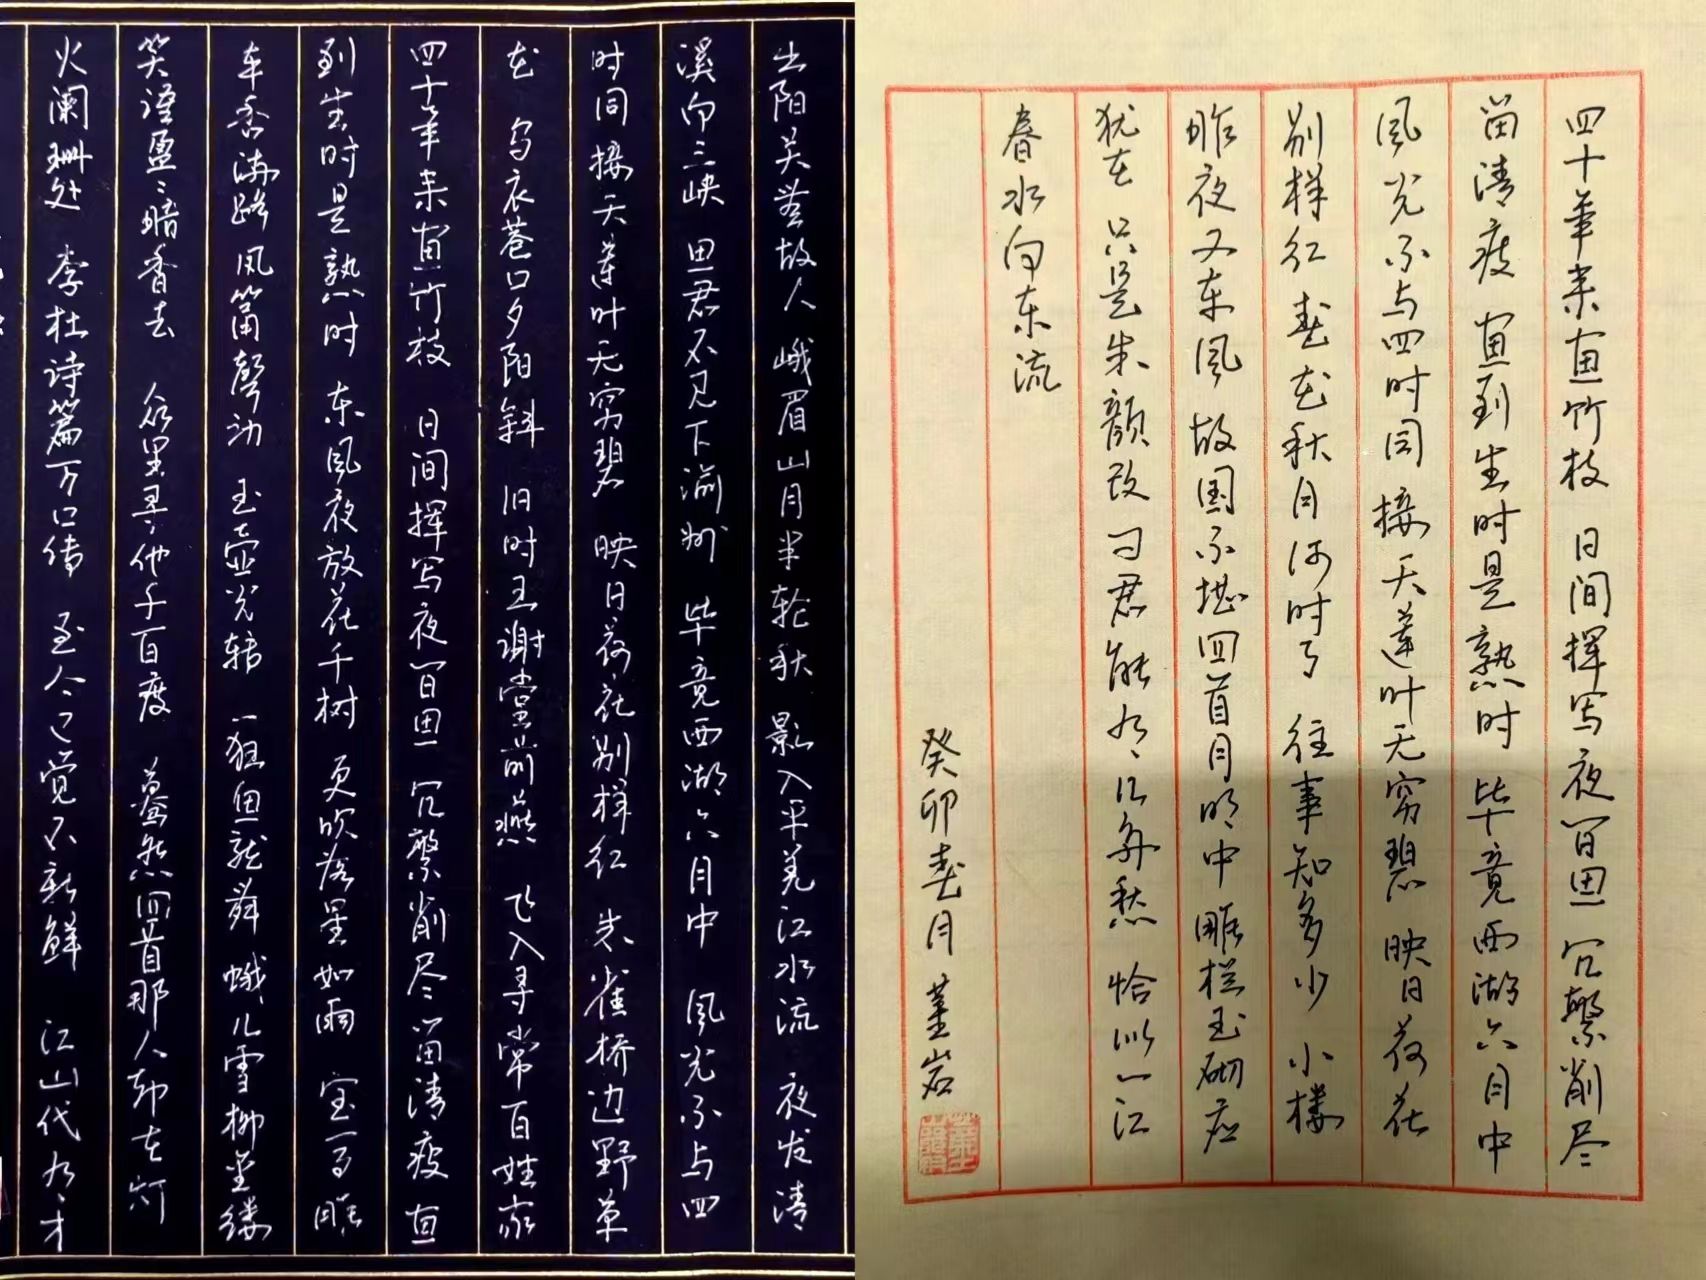 出阳关無故人 峨眉山月半轮秋 影入平羌江水流 夜发清
溪向三峡 思君不见下渝州 毕竟西湖六月中 風光不与四
时同 接天莲叶无穷碧 映日荷花别样红 朱雀桥边野草
花 乌衣巷口夕阳斜 旧时王谢堂前燕 飞入寻常百姓家
四十年来画竹枝 日间挥写夜间思 冗繁削尽留清瘦 画
到生时是熟时 东風夜放花千树 更吹落星如雨 宝马雕
车香满路 凤箫聲动 玉壶光转 一夜鱼龙舞 蛾儿雪柳金缕
笑语盈盈暗香去 众里寻他千百度 蓦然回首那人却在灯
火阑珊处 李杜诗篇万口传 至今已觉不新鲜 江山代有才
四十年来画竹枝 日间挥写夜间思 冗繁削尽
留清瘦 画到生时是熟时 毕竟西湖六月中
風光不与四时同 接天莲叶无穷碧 映日荷花
别样红 春花秋月何时了 往事知多少 小楼
昨夜又东風 故国不堪回首月明中 雕栏玉砌应
犹在 只是朱颜改 问君能有几多愁 恰似一江
春水向东流
癸卯春月 董岩